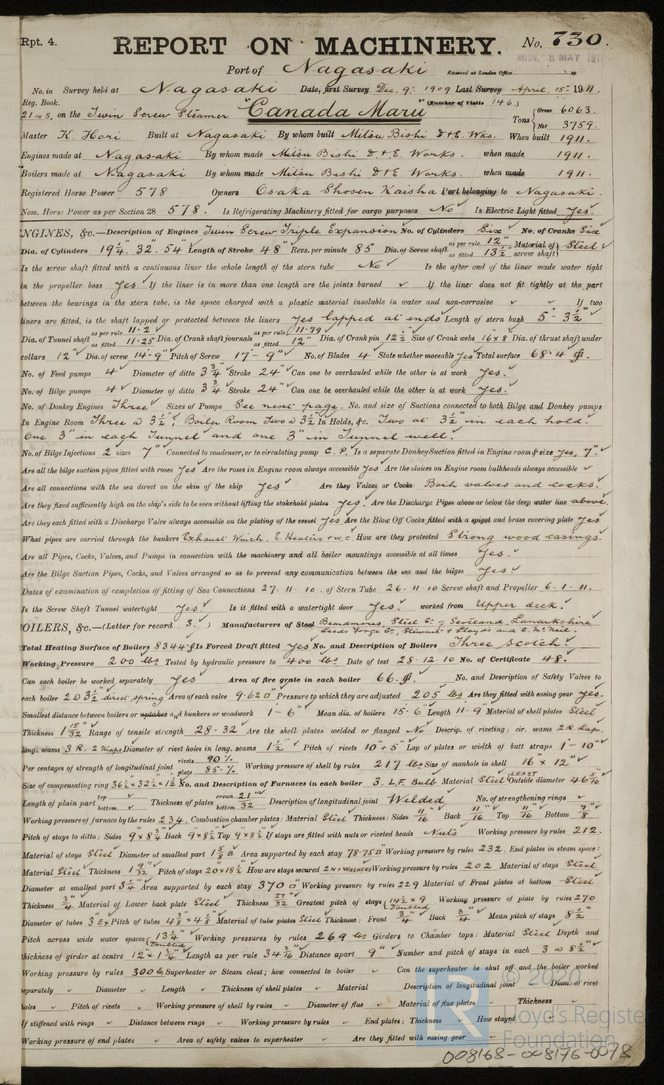 Rpt. 4.
REPORT ON MACHINERY. No. 730.
Port of Nagasaki Received at London Office MON. 8 MAY 1911
No. in Survey held at Nagasaki Date, first Survey Dec. 9: 1909 Last Survey April 15: 1911
Reg. Book. (Number of Visits 146)
21 in S. on the Twin Screw Steamer "Canada Maru" Tons Gross 6063. Net 3759.
Master K. Hori Built at Nagasaki By whom built Mitsu Bishi D & E. Wks. When built 1911.
Engines made at Nagasaki By whom made Mitsu Bishi D & E. Works. when made 1911.
Boilers made at Nagasaki By whom made Mitsu Bishi D & E. Works. when made 1911.
Registered Horse Power 578 Owners Osaka Shosen Kaisha Port belonging to Nagasaki.
Nom. Horse Power as per Section 28 578. Is Refrigerating Machinery fitted for cargo purposes No Is Electric Light fitted Yes.
NGINES, &c.—Description of Engines Twin Screw Triple Expansion No. of Cylinders Six No. of Cranks Six
Dia. of Cylinders 19¼" 32" 54" Length of Stroke 48" Revs. per minute 85 Dia. of Screw shaft as per rule 12" as fitted 13½" Material of screw shaft Steel
Is the screw shaft fitted with a continuous liner the whole length of the stern tube No Is the after end of the liner made water tight
in the propeller boss Yes If the liner is in more than one length are the joints burned ✓ If the liner does not fit tightly at the part
between the bearings in the stern tube, is the space charged with a plastic material insoluble in water and non-corrosive ✓ If two
liners are fitted, is the shaft lapped or protected between the liners Yes lapped at ends Length of stern bush 5'-3½"
Dia. of Tunnel shaft as per rule 11.2 as fitted 11.25 Dia. of Crank shaft journals as per rule 11.79 as fitted 12" Dia. of Crank pin 12½ Size of Crank webs 16 x 8 Dia. of thrust shaft under
collars 12" Dia. of screw 14'-9" Pitch of Screw 17'-9" No. of Blades 4 State whether moveable Yes Total surface 68.4 ft.
No. of Feed pumps 4 Diameter of ditto 3¾" Stroke 24" Can one be overhauled while the other is at work Yes.
No. of Bilge pumps 4 Diameter of ditto 3¾" Stroke 24" Can one be overhauled while the other is at work Yes.
No. of Donkey Engines Three Sizes of Pumps See next page. No. and size of Suctions connected to both Bilge and Donkey pumps
In Engine Room Three @ 3½", Boiler Room Two @ 3½ In Holds, &c. Two at 3½" in each hold.
One 3" in each Tunnel and one 3" in Tunnel well.
No. of Bilge Injections 2 sizes 7" Connected to condenser, or to circulating pump C.P. Is a separate Donkey Suction fitted in Engine room & size Yes, 7".
Are all the bilge suction pipes fitted with roses Yes Are the roses in Engine room always accessible Yes Are the sluices on Engine room bulkheads always accessible ✓
Are all connections with the sea direct on the skin of the ship Yes Are they Valves or Cocks Both valves and cocks.
Are they fixed sufficiently high on the ship's side to be seen without lifting the stokehold plates Yes. Are the Discharge Pipes above or below the deep water line above.
Are they each fitted with a Discharge Valve always accessible on the plating of the vessel Yes Are the Blow Off Cocks fitted with a spigot and brass covering plate Yes
What pipes are carried through the bunkers Exhaust Winch. E. Heating & W.C. How are they protected Strong wood casings.
Are all Pipes, Cocks, Valves, and Pumps in connection with the machinery and all boiler mountings accessible at all times Yes.
Are the Bilge Suction Pipes, Cocks, and Valves arranged so as to prevent any communication between the sea and the bilges Yes
Dates of examination of completion of fitting of Sea Connections 27.11.10. of Stern Tube 26.11.10 Screw shaft and Propeller 6.1.11.
Is the Screw Shaft Tunnel watertight Yes Is it fitted with a watertight door Yes. worked from Upper deck.
OILERS, &c.—(Letter for record S.) Manufacturers of Steel Beardmores, Steel Co. of Scotland, Lanarkshire
Leeds Forge Co, Stewart & Lloyds
Total Heating Surface of Boilers 8344 ft Is Forced Draft fitted Yes No. and Description of Boilers Three Scotch.
Working Pressure 200 lbs Tested by hydraulic pressure to 400 lbs Date of test 28.12.10 No. of Certificate 48.
Can each boiler be worked separately Yes Area of fire grate in each boiler 66 ft. No. and Description of Safety Valves to
each boiler 2 @ 3½ direct spring Area of each valve 9.62 □" Pressure to which they are adjusted 205 lbs Are they fitted with easing gear Yes.
Smallest distance between boilers or uptakes and bunkers or woodwork 1'-6" Mean dia. of boilers 15'-6 Length 11'-9 Material of shell plates Steel
Thickness 1 15/32 Range of tensile strength 28.32 Are the shell plates welded or flanged No Descrip. of riveting: cir. seams 2 R. Lap.
long. seams 3 R. 2 Straps Diameter of rivet holes in long. seams 1½" Pitch of rivets 10"+5" Lap of plates or width of butt straps 1'-10"
Per centages of strength of longitudinal joint rivets 90% plate 85% Working pressure of shell by rules 217 lbs Size of manhole in shell 16" x 12"
Size of compensating ring 36½ x 32½ x 1½ No. and Description of Furnaces in each boiler 3. L.F. Bulb Material Steel Outside diameter LEAST 46⅝
Length of plain part top bottom ✓ Thickness of plates crown bottom 21/32 Description of longitudinal joint Welded No. of strengthening rings ✓
Working pressure of furnace by the rules 234. Combustion chamber plates: Material Steel Thickness: Sides 11/16 Back 11/16 Top 11/16 Bottom 7/8
Pitch of stays to ditto: Sides 9 x 8¾ Back 9 x 8½ Top 9 x 8½ If stays are fitted with nuts or riveted heads Nuts Working pressure by rules 212.
Material of stays Steel Diameter at smallest part 1⅝ Area supported by each stay 78.75 □ Working pressure by rules 232. End plates in steam space:
Material Steel Thickness 1 9/32 Pitch of stays 20 x 18½ How are stays secured 2 N & WASHERS Working pressure by rules 202 Material of stays Steel
Diameter at smallest part 3¼ Area supported by each stay 370 □ Working pressure by rules 229 Material of Front plates at bottom Steel
Thickness ¾ Material of Lower back plate Steel Thickness 27/32 Greatest pitch of stays 14½ x 9 Working pressure of plate by rules 270
Diameter of tubes 3" Ex Pitch of tubes 4⅜ x 4⅜ Material of tube plates Steel Thickness: Front ¾ Back ¾ Mean pitch of stays 8½
Pitch across wide water spaces 13¼ Doubled Working pressures by rules 269 lbs Girders to Chamber tops: Material Steel Depth and
thickness of girder at centre 12" x 1¼ Length as per rule 34 Distance apart 9" Number and pitch of stays in each 3 @ 8½"
Working pressure by rules 300 lbs Superheater or Steam chest; how connected to boiler ✓ Can the superheater be shut off and the boiler worked
eparately ✓ Diameter ✓ Length ✓ Thickness of shell plates ✓ Material Description of longitudinal joint Diam. of rivet
holes ✓ Pitch of rivets ✓ Working pressure of shell by rules ✓ Diameter of flue ✓ Material of flue plates ✓ Thickness
If stiffened with rings ✓ Distance between rings ✓ Working pressure by rules ✓ End plates: Thickness How stayed
Working pressure of end plates ✓ Area of safety valves to superheater ✓ Are they fitted with easing gear ✓
© 2020
LR
Lloyd's Register
Foundation
008168-008176-0078